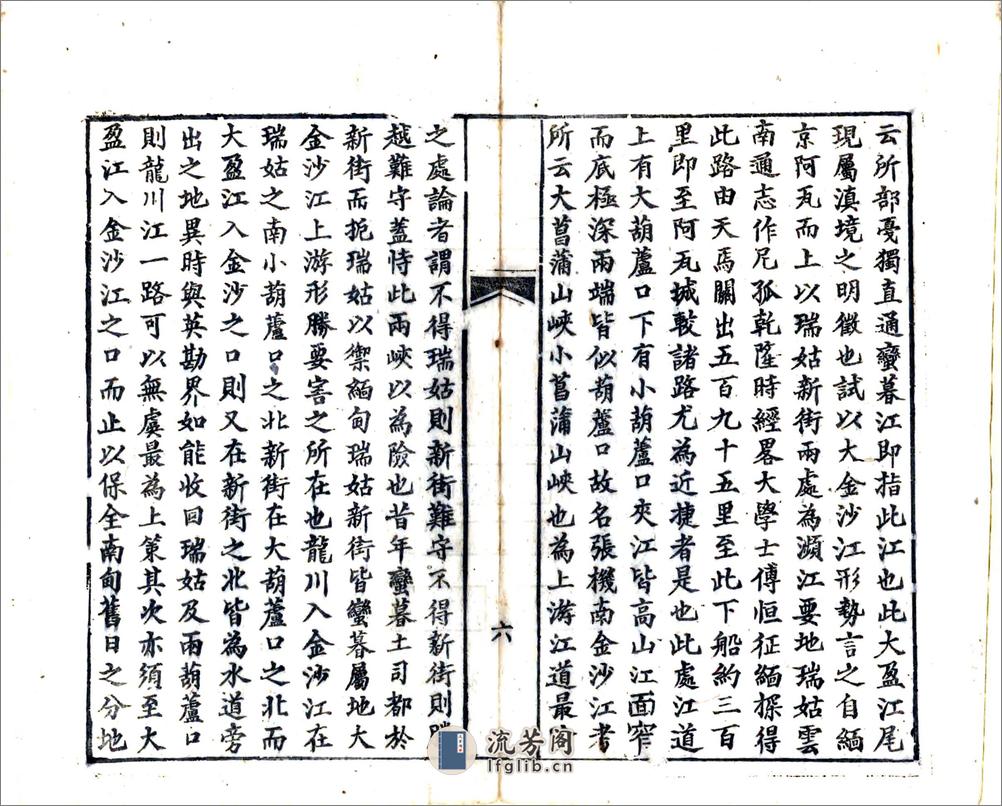 云所部戞獨直通蠻暮江即指此江也此大盈江尾
現屬滇境之明徵也試以大金沙江形勢言之自緬
京阿瓦而上以瑞姑新街兩處為瀕江要地瑞姑雲
南通志作尼孤乾隆時經畧大學士傅恒征緬探得
此路由天馬關出五百九十五里至此下船約三百
里即至阿瓦城較諸路尤為近捷者是也此處江道
上有大葫蘆口下有小葫蘆口夾江皆高山江面窄
而底極深兩端皆似葫蘆口故名張機南金沙江考
所云大菖蒲山峽小菖蒲山峽也為上游江道最
六
之處論者謂不得瑞姑則新街難守不得新街則
越難守蓋恃此兩峽以為險也昔年蠻暮土司都於
新街而扼瑞姑以禦緬甸瑞姑新街皆蠻暮屬地大
金沙江上游形勝要害之所在也龍川入金沙江在
瑞姑之南小葫蘆口之北新街在大葫蘆口之北而
大盈江入金沙之口則又在新街之北皆為水道旁
出之地異時與英勘界如能收回瑞姑及兩葫蘆口
則龍川江一路可以無虞最為上策其次亦須至大
盈江入金沙江之口而止以保全南甸舊日之分地
流芳阁
lfglib.cn